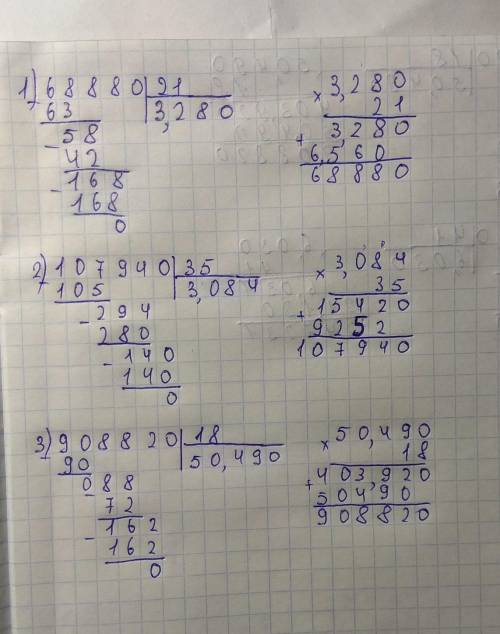 1) 68880 | 21
63 3,280
- 58
42
- 168
168
0
× 3,280
21
+ 3280
6,560
68880
2) 107940 | 35
105 3,084
- 294
280
- 140
140
0
× 3,084
35
+ 15420
9252
107940
3) 908820 | 18
90 50,490
- 088
72
- 162
162
0
× 50,490
18
+ 403,920
50490
908820